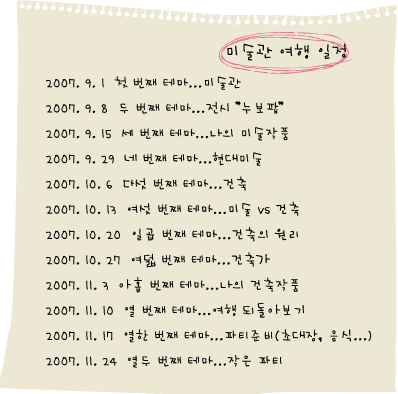 미술관 여행 일정
2007. 9. 1 첫 번째 테마...미술관
2007. 9. 8 두 번째 테마...전시 "누보팝"
2007. 9. 15 세 번째 테마...나의 미술작품
2007. 9. 29 네 번째 테마...현대미술
2007. 10. 6 다섯 번째 테마...건축
2007. 10. 13 여섯 번째 테마...미술 vs 건축
2007. 10. 20 일곱 번째 테마...건축의 원리
2007. 10. 27 여덟 번째 테마...건축가
2007. 11. 3 아홉 번째 테마...나의 건축작품
2007. 11. 10 열 번째 테마...여행 되돌아보기
2007. 11. 17 열한 번째 테마...파티준비(초대장, 음식...)
2007. 11. 24 열두 번째 테마...작은 파티